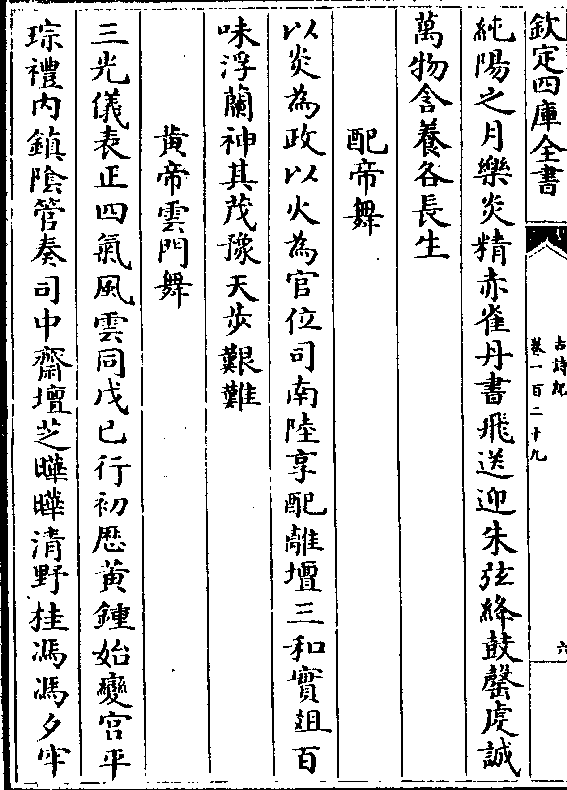 欽定四庫全書
古詩紀
卷一百二十九
六
純陽之月樂炎精赤雀丹書飛送迎朱弦絳鼓罄虔誠
萬物含養各長生
配帝舞
以炎為政以火為官位司南陸享配離壇三和實俎百
味浮蘭神其茂豫天步艱難
黃帝雲門舞
三光儀表正四氣風雲同戊己行初厯黃鍾始變宮平
琮禮内鎮隂管奏司中齋壇芝曄曄清野桂馮馮夕牢